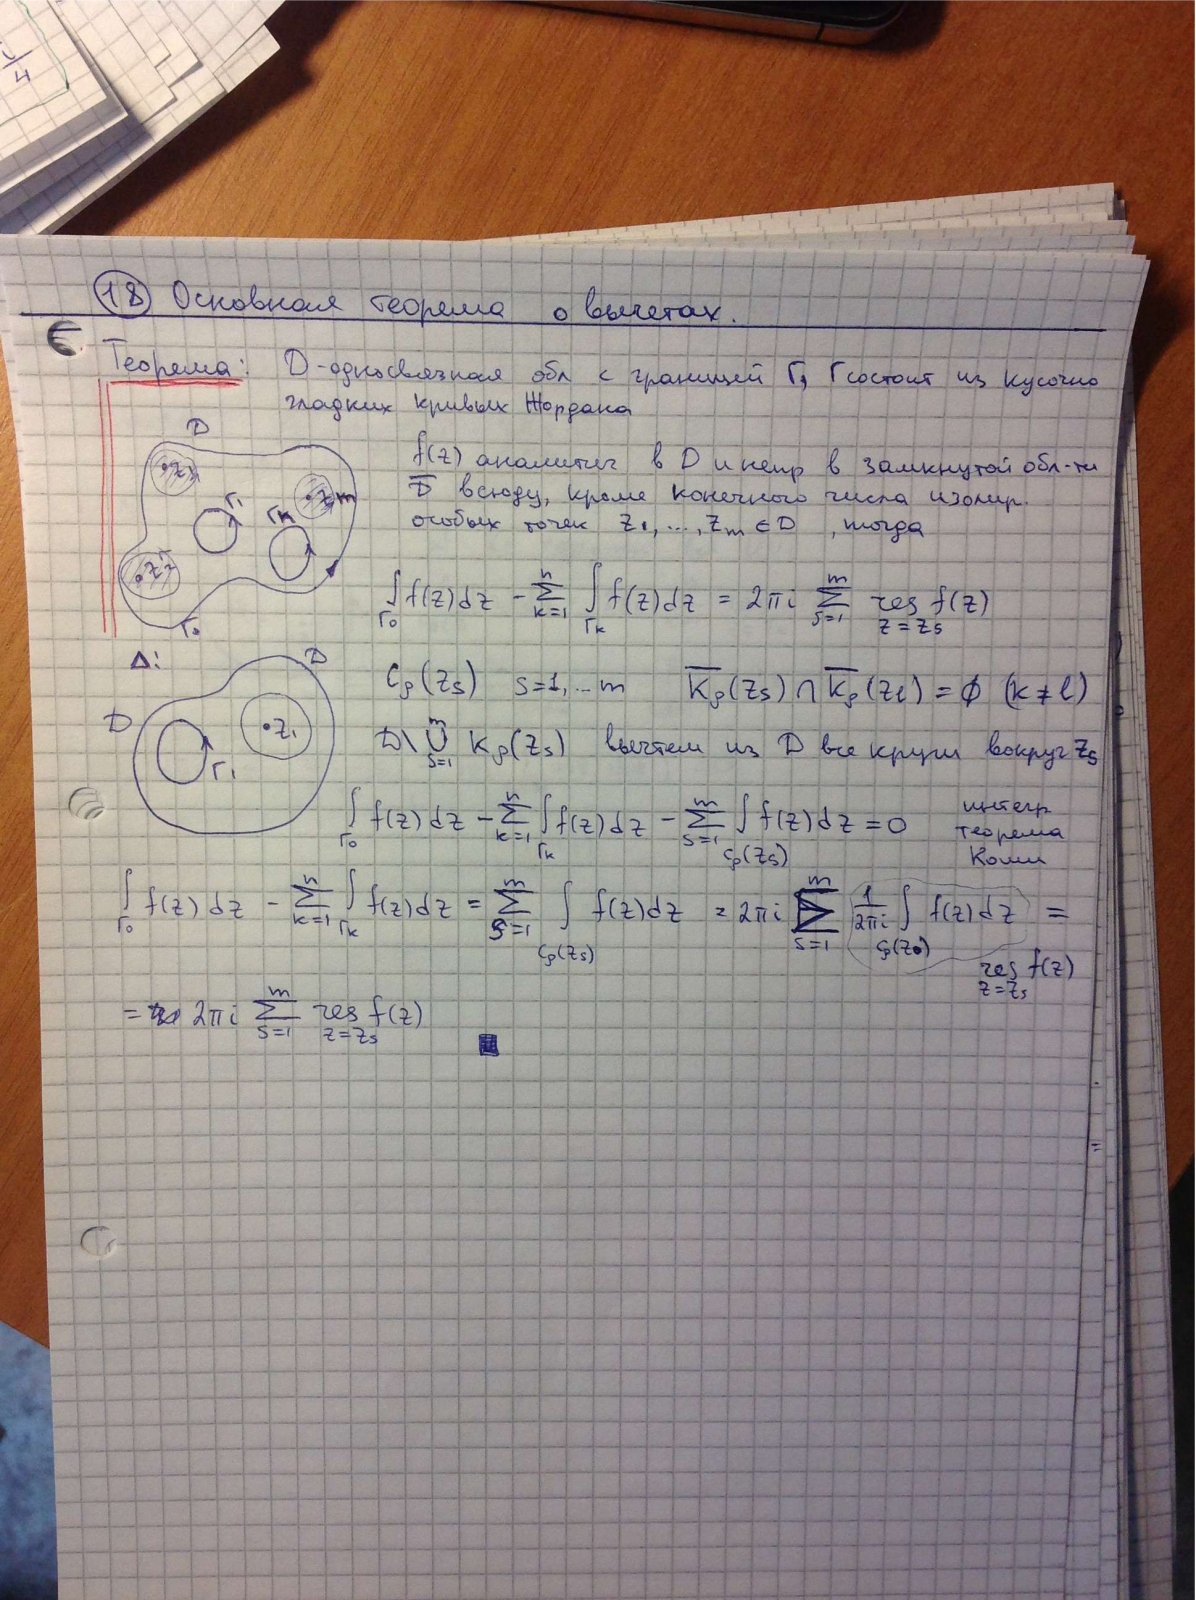 18 Основная теорема о вычетах.
Теорема: D-односвязная обл с границей Γ, Γ состоит из кусочно
гладких кривых Жордана
D
z₁
Γ₁
Γₖ
zₘ
z₂
Γ₀
f(z) аналитич в D и непр в замкнутой обл-ти
D̅ всюду, кроме конечного числа изолир.
особых точек z₁, ..., zₘ ∈ D , тогда
∫_Γ₀ f(z)dz - ∑_{k=1}^{n} ∫_Γₖ f(z)dz = 2πi ∑_{s=1}^{m} res_{z=z_s} f(z)
Δ:
D
D
Γ₁
z₁
C_ρ(z_s) s=1,...m K̅_ρ(z_s) ∩ K̅_ρ(z_l) = ∅ (k≠l)
D\ ⋃_{s=1}^{m} K_ρ(z_s) вычтем из D все круги вокруг z_s
∫_Γ₀ f(z)dz - ∑_{k=1}^{n} ∫_Γₖ f(z)dz - ∑_{s=1}^{m} ∫_{C_ρ(z_s)} f(z)dz = 0
интегр
теорема
Коши
∫_Γ₀ f(z)dz - ∑_{k=1}^{n} ∫_Γₖ f(z)dz = ∑_{s=1}^{m} ∫_{C_ρ(z_s)} f(z)dz = 2πi ∑_{s=1}^{m} 1/2πi ∫_{C_ρ(z₀)} f(z)dz =
res_{z=z_s} f(z)
= 2πi ∑_{s=1}^{m} res_{z=z_s} f(z)